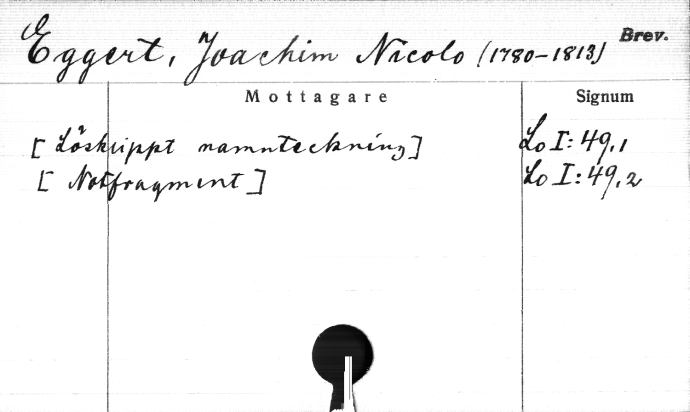 Eggert, Joachim Nicolo (1780-1813) Brev.
Mottagare Signum
[Lösklippt namnteckning] Lo I:49,1
[Notfragment] Lo I:49,2